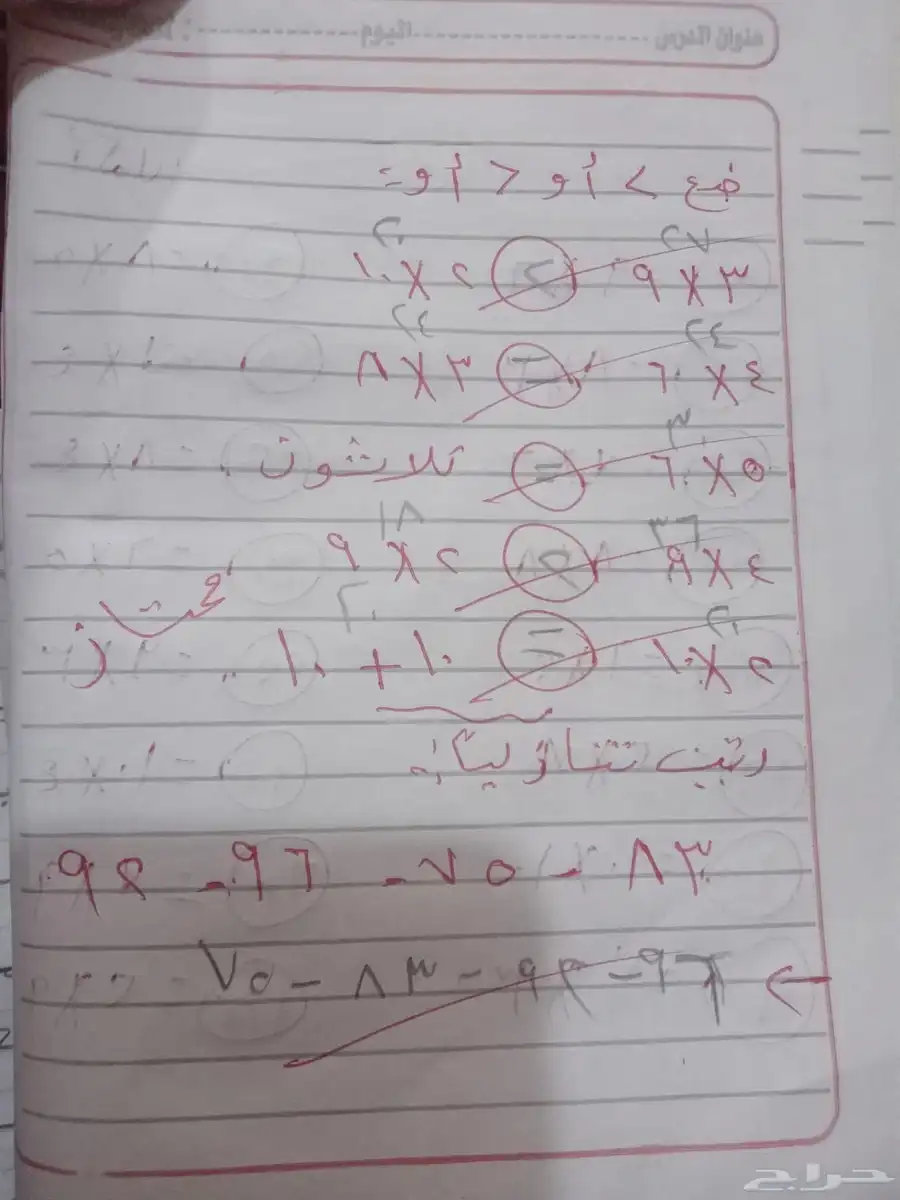 عنوان الدرس ---------------- اليوم ----------- :
ضع > أو < أو =
٢٧ ٢٠
٣ × ٩ > ٢ × ١٠
٢٤ ٢٤
٤ × ٦ = ٣ × ٨
٣٠
٥ × ٦ = ثلاثون
٣٦ ١٨
٤ × ٩ > ٢ × ٩
٢٠ ٢٠
٢ × ١٠ = ١٠ + ١٠
ممتاز
رتب تنازليًا:
٨٣ - ٧٥ - ٩٦ - ٩٢
← ٩٦ - ٩٢ - ٨٣ - ٧٥
حراج